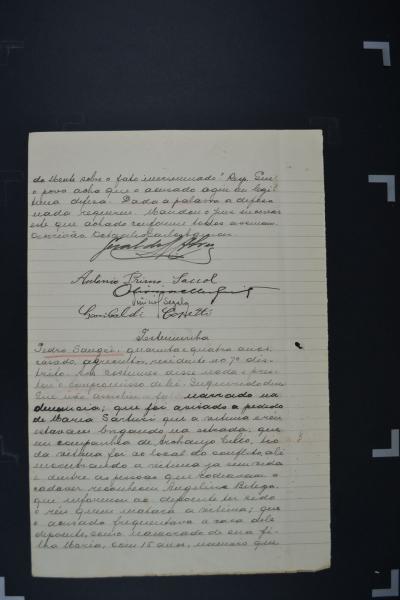 do Mente sobre o fato incriminado? Resp. Que
o povo acha que o acusado agiu em legi
tima defesa. Dada a palavra a defesa
nada requereu. Mandou o Juiz encerrar
este que achado conforme todos assinam.
Antonio Primo Saccol
Garibaldi Cosetti
Testemunha
Pedro Sangoi, quarenta e quatro anos,
casado, agricultor, residente no 7º dis
trito. Aos costumes disse nada e pres
tou o compromisso de lei. Inquirido disse
que não assistiu o fato narrado na
denuncia; que foi avisado a pedido
de Maria Sarturi que a vitima e réu
estavam brigando na estrada, que
em companhia de
da vitima foi ao local do conflito, ali
encontrando a vitima ja sem vida
e dentre as pessoas que rodeavam o
cadaver reconheceu Angelino
que informou ao depoente ter sido
o réu quem matara a vitima; que
o acusado frequentava a casa dele
depoente, como namorado de sua fi-
lha Maria, com 15 anos, namoro que